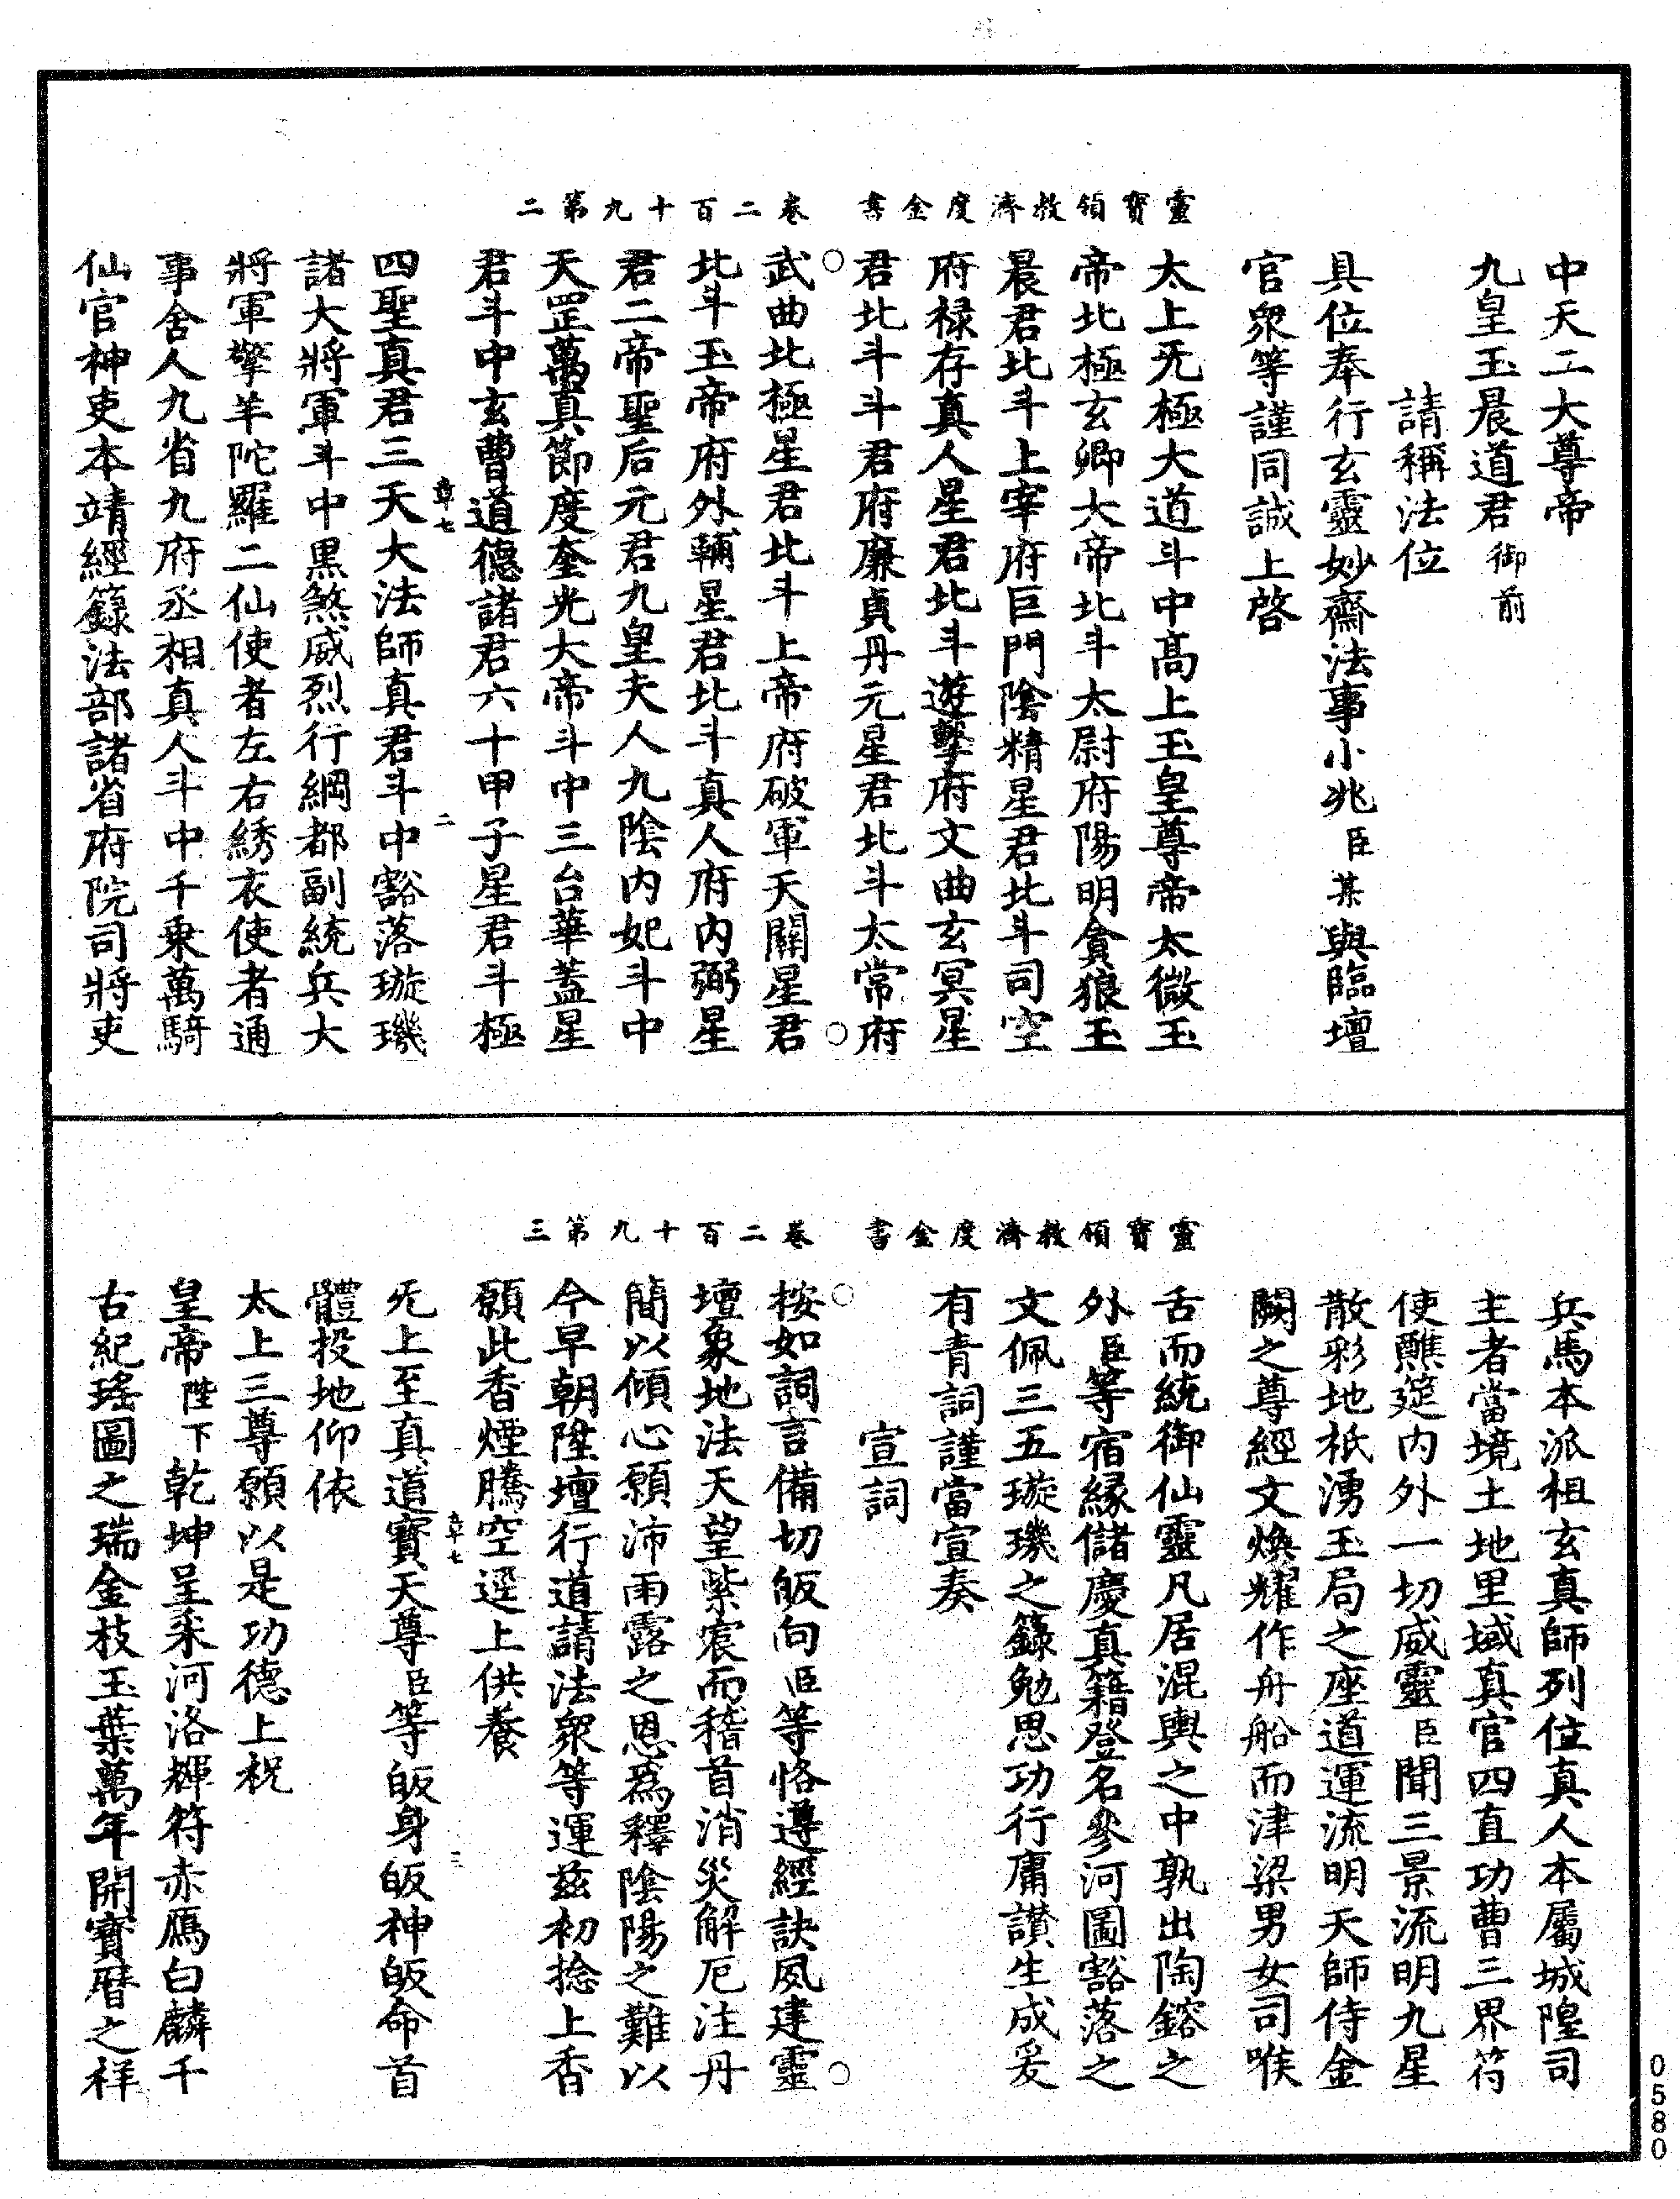 靈寶領教濟度金書 卷二百十九第二
中天二大尊帝
九皇玉晨道君御前
請稱法位
具位奉行玄靈妙齋法事小兆臣某與臨壇
官衆等謹同誠上啓
太上旡極大道斗中高上玉皇尊帝太微玉
帝北極玄卿大帝北斗太尉府陽明貪狼玉
晨君北斗上宰府巨門陰精星君北斗司空
府祿存真人星君北斗遊擊府文曲玄冥星
君北斗斗君府廉貞丹元星君北斗太常府
武曲北極星君北斗上帝府破軍天關星君
北斗玉帝府外輔星君北斗真人府內弼星
君二帝聖后元君九皇夫人九陰內妃斗中
天罡萬真節度奎光大帝斗中三台華蓋星
君斗中玄曹道德諸君六十甲子星君斗極
章七 二
四聖真君三天大法師真君斗中豁落璇璣
諸大將軍斗中黑煞威烈行綱都副統兵大
將軍擎羊陀羅二仙使者左右綉衣使者通
事舍人九省九府丞相真人斗中千乘萬騎
仙官神吏本靖經籙法部諸省府院司將吏
靈寶領教濟度金書 卷二百十九第三
兵馬本派祖玄真師列位真人本屬城隍司
主者當境土地里域真官四直功曹三界符
使醮筵內外一切威靈臣聞三景流明九星
散彩地祇湧玉局之座道運流明天師侍金
闕之尊經文煥耀作舟船而津梁男女司喉
舌而統御仙靈凡居混輿之中孰出陶鎔之
外臣等宿緣儲慶真籍登名參河圖豁落之
文佩三五璇璣之籙勉思功行庸讚生成爰
有青詞謹當宣奏
宣詞
按如詞言備切皈向臣等恪遵經訣夙建靈
壇象地法天望紫宸而稽首消災解厄注丹
簡以傾心願沛雨露之恩爲釋陰陽之難以
今早朝陞壇行道請法衆等運茲初捻上香
願此香煙騰空逕上供養
章七 三
旡上至真道寶天尊臣等皈身皈神皈命首
體投地仰依
太上三尊願以是功德上祝
皇帝陛下乾坤呈釆河洛輝符赤鴈白麟千
古紀瑤圖之瑞金枝玉葉萬年開寶曆之祥
0580